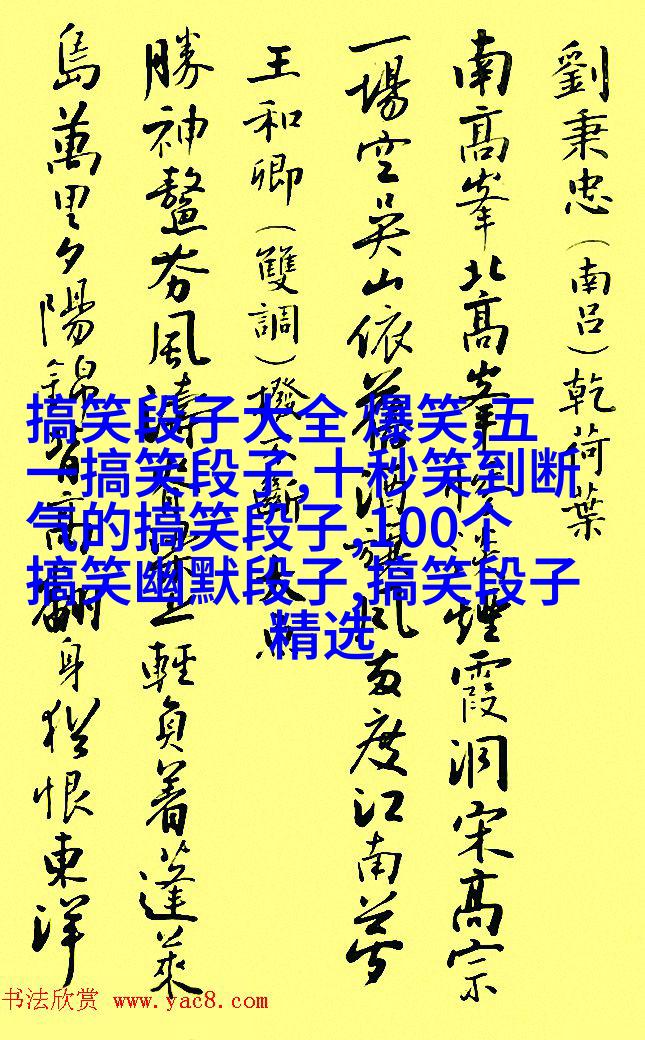 劉秉忠（南呂）乾荷葉
南高峯北高峯淡煙霞洞宋高宗
一場空吳山依舊酒旗風兩度江南夢
王和卿（雙調）撥不斷大魚
勝神鰲夯風濤脊梁上輕負着蓬萊
島萬里夕陽錦背高翻身猶恨東洋
搞笑段子大全 爆笑,五
一搞笑段子,十秒笑到断
气的搞笑段子,100个
搞笑幽默段子,搞笑段子
精选
书法欣赏 www.yac8.com